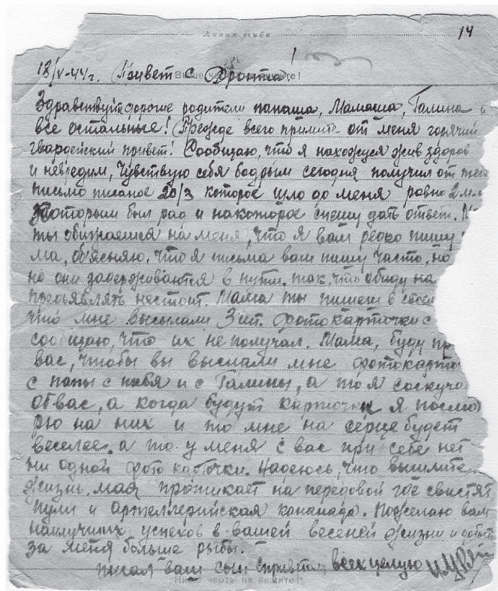 Линия сгиба
14
18/V-44 г. Привет с Фронта!
Здравствуйте дорогие родители папаша, Мамаша, Галина и
все остальные! Прежде всего примите от меня горячий
гвардейский привет! Сообщаю, что я нахожуся жив здоров
и невредим, Чувствую себя бодрым сегодня получил от
письмо писаное 28/3 которое шло до меня ровно 2
которым был рад и на которое спешу дать ответ.
ты обижаешся на меня, что я вам редко пишу
ма, объясняю, что я письма вам пишу часто, но
но они задерживаются в пути. так, что обиду на
предъявлять нестоит. Мама ты пишеш в своем
что мне высылали 3 шт. фотокарточки с
сообщаю, что их не получал. Мама, буду
вас, чтобы вы выслали мне фотокарто
с папы с тебя и с Галины, а то я соскучи
об вас, а когда будут карточки я посмо
рю на них и то мне на серце будет
веселее. а то у меня с вас при себе нет
ни одной фото карточки. Надеюсь, что вышлите.
Жизнь, моя протикает на передовой где свистят
пули и артеллерийская кононада. Пожелаю вам
наилучших успехов в вашей весеней жизни и
за меня больше рыбы.
писал ваш сын всех целую